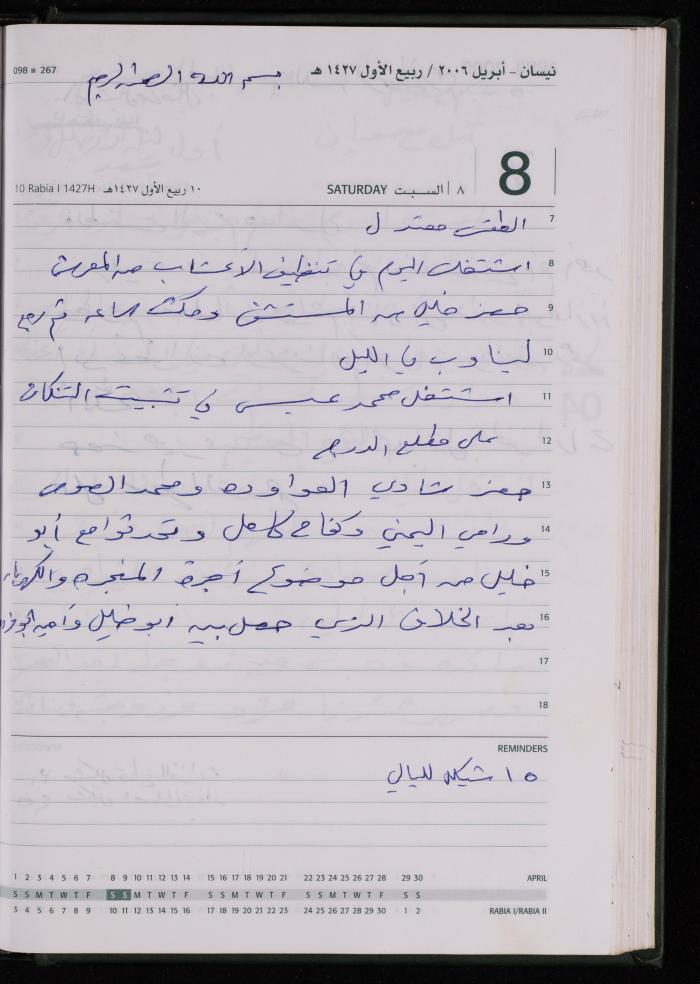 098 ■ 267
نيسان - أبريل ٢٠٠٦ / ربيع الأول ١٤٢٧ هـ
بسم الله الرحمن الرحيم
8
10 Rabia I 1427H
١٠ ربيع الأول ١٤٢٧هـ
SATURDAY
السبت ٨
7 الطقس معتدل
8 اشتغلت اليوم في تنظيف الأعشاب من المعرش
9 حضر خليل من المستشفى ومكث ساعه ثم رجع
10 لينا وب في الليل
11 اشتغل محمد عيسى في تثبيت التنكات
12 على مطلع الدرج
13 حضر شادي العواوده ومحمد الصوص
14 ورامي اليمني وكفاح كامل وتحدثوا مع أبو
15 خليل من أجل موضوع أجرة المنجره والكهرباء
16 بعد الخلاف الذي حصل بين أبو خليل وأمين
17
18
REMINDERS
١٥ شيكل لليالي
1 2 3 4 5 6 7 8 9 10 11 12 13 14 15 16 17 18 19 20 21 22 23 24 25 26 27 28 29 30 APRIL
S S M T W T F S S M T W T F S S M T W T F S S M T W T F S S
3 4 5 6 7 8 9 10 11 12 13 14 15 16 17 18 19 20 21 22 23 24 25 26 27 28 29 30 1 2 RABIA I/RABIA II